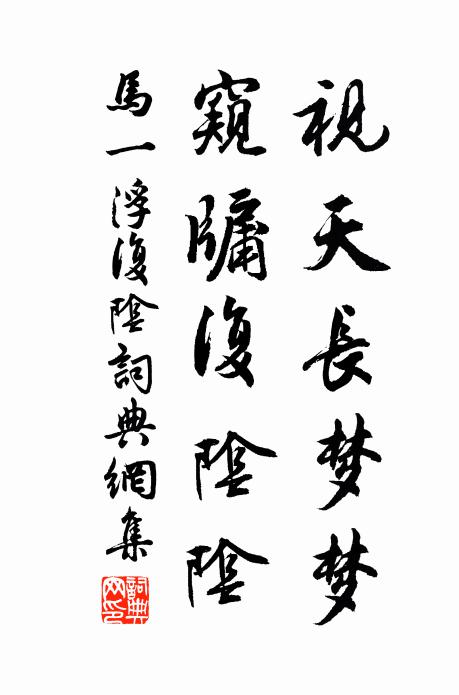 祝天長梦梦
窺牖復陰陰
馬一浮復陰詞典網集
詞典網印